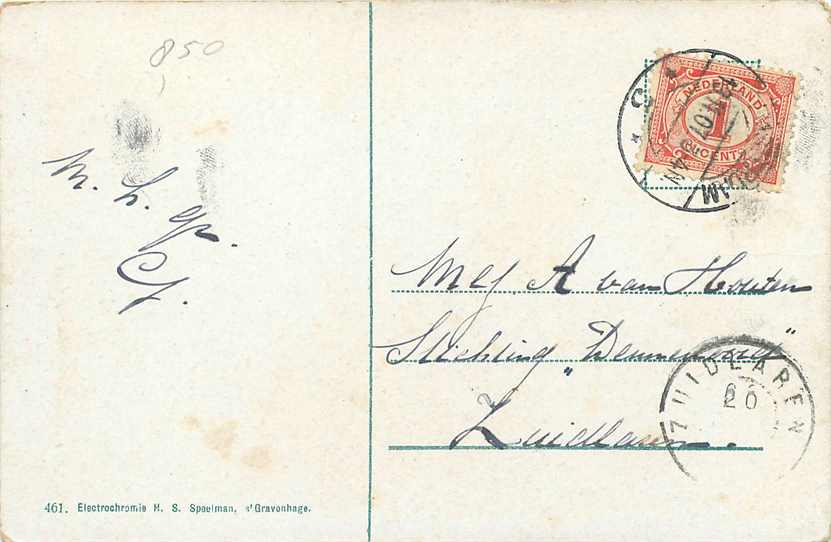 850
M. h. gr.
NEDERLAND
1
CENT
Mej A van Houten
Stichting "Dennenoord"
Zuidlaren.
ZUIDLAREN
20
461. Electrochromie H. S. Speelman, s'Gravenhage.